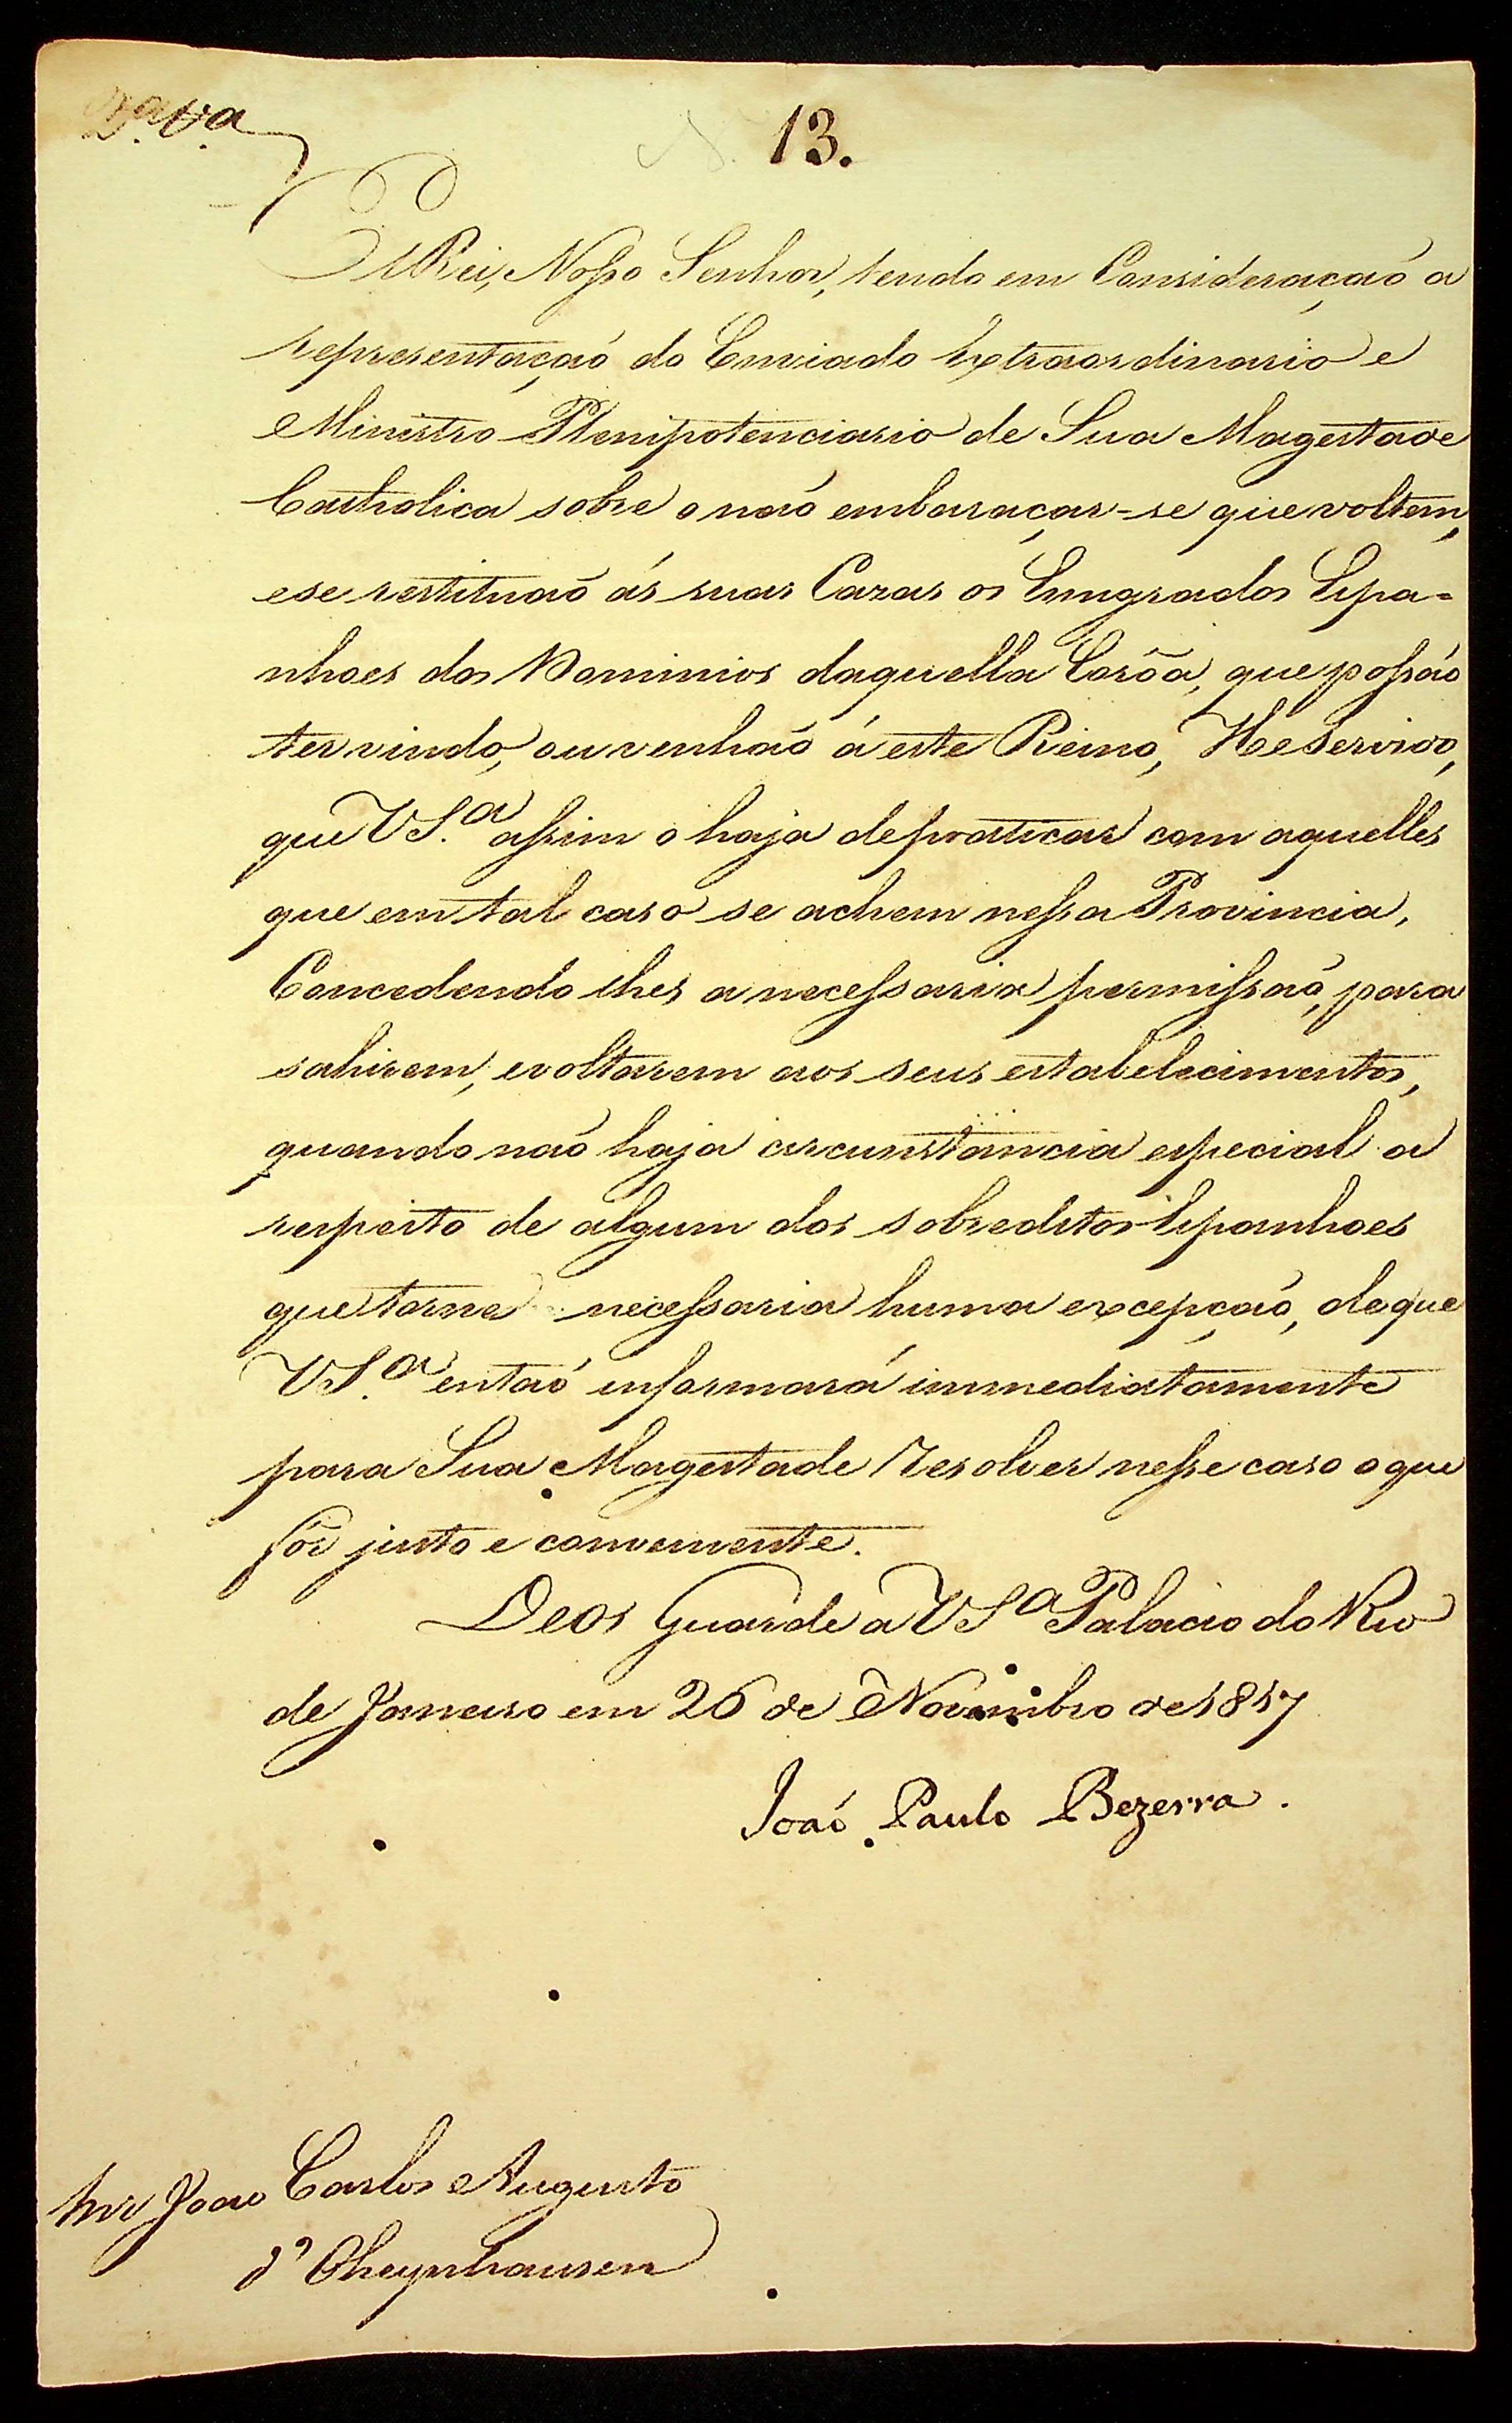 2.ª V.ª
N. 13.
ElRei, Nosso Senhor, tendo em Consideraçaõ a
representaçaõ do Enviado Extraordinario e
Ministro Plenipotenciario de Sua Magestade
Catholica sobre o naõ embaraçar-se que voltem,
e se restituaõ ás suas Cazas os Emigrados Espa=
nhoes dos Dominios daquella Corôa, que possaõ
ter vindo, ou venhaõ á este Reino, He Servido,
que VS.ª assim o haja de praticar com aquelles
que em tal caso se achem nessa Provincia,
Concedendo lhes a necessaria permissaõ, para
sahirem, e voltarem aos seus estabelecimentos,
quando naõ haja circunstancia especial a
respeito de algum dos sobreditos Espanhoes
que torne necessaria huma excepçaõ, de que
VS.ª entaõ informará immediatamente
para Sua Magestade Resolver nesse caso o que
fôr justo e conveniente.
Deos Guarde a VS.ª Palacio do Rio
de Janeiro em 26 de Novembro de 1817
Joaõ Paulo Bezerra.
Snr Joaõ Carlos Augusto
d'Oheynhausen